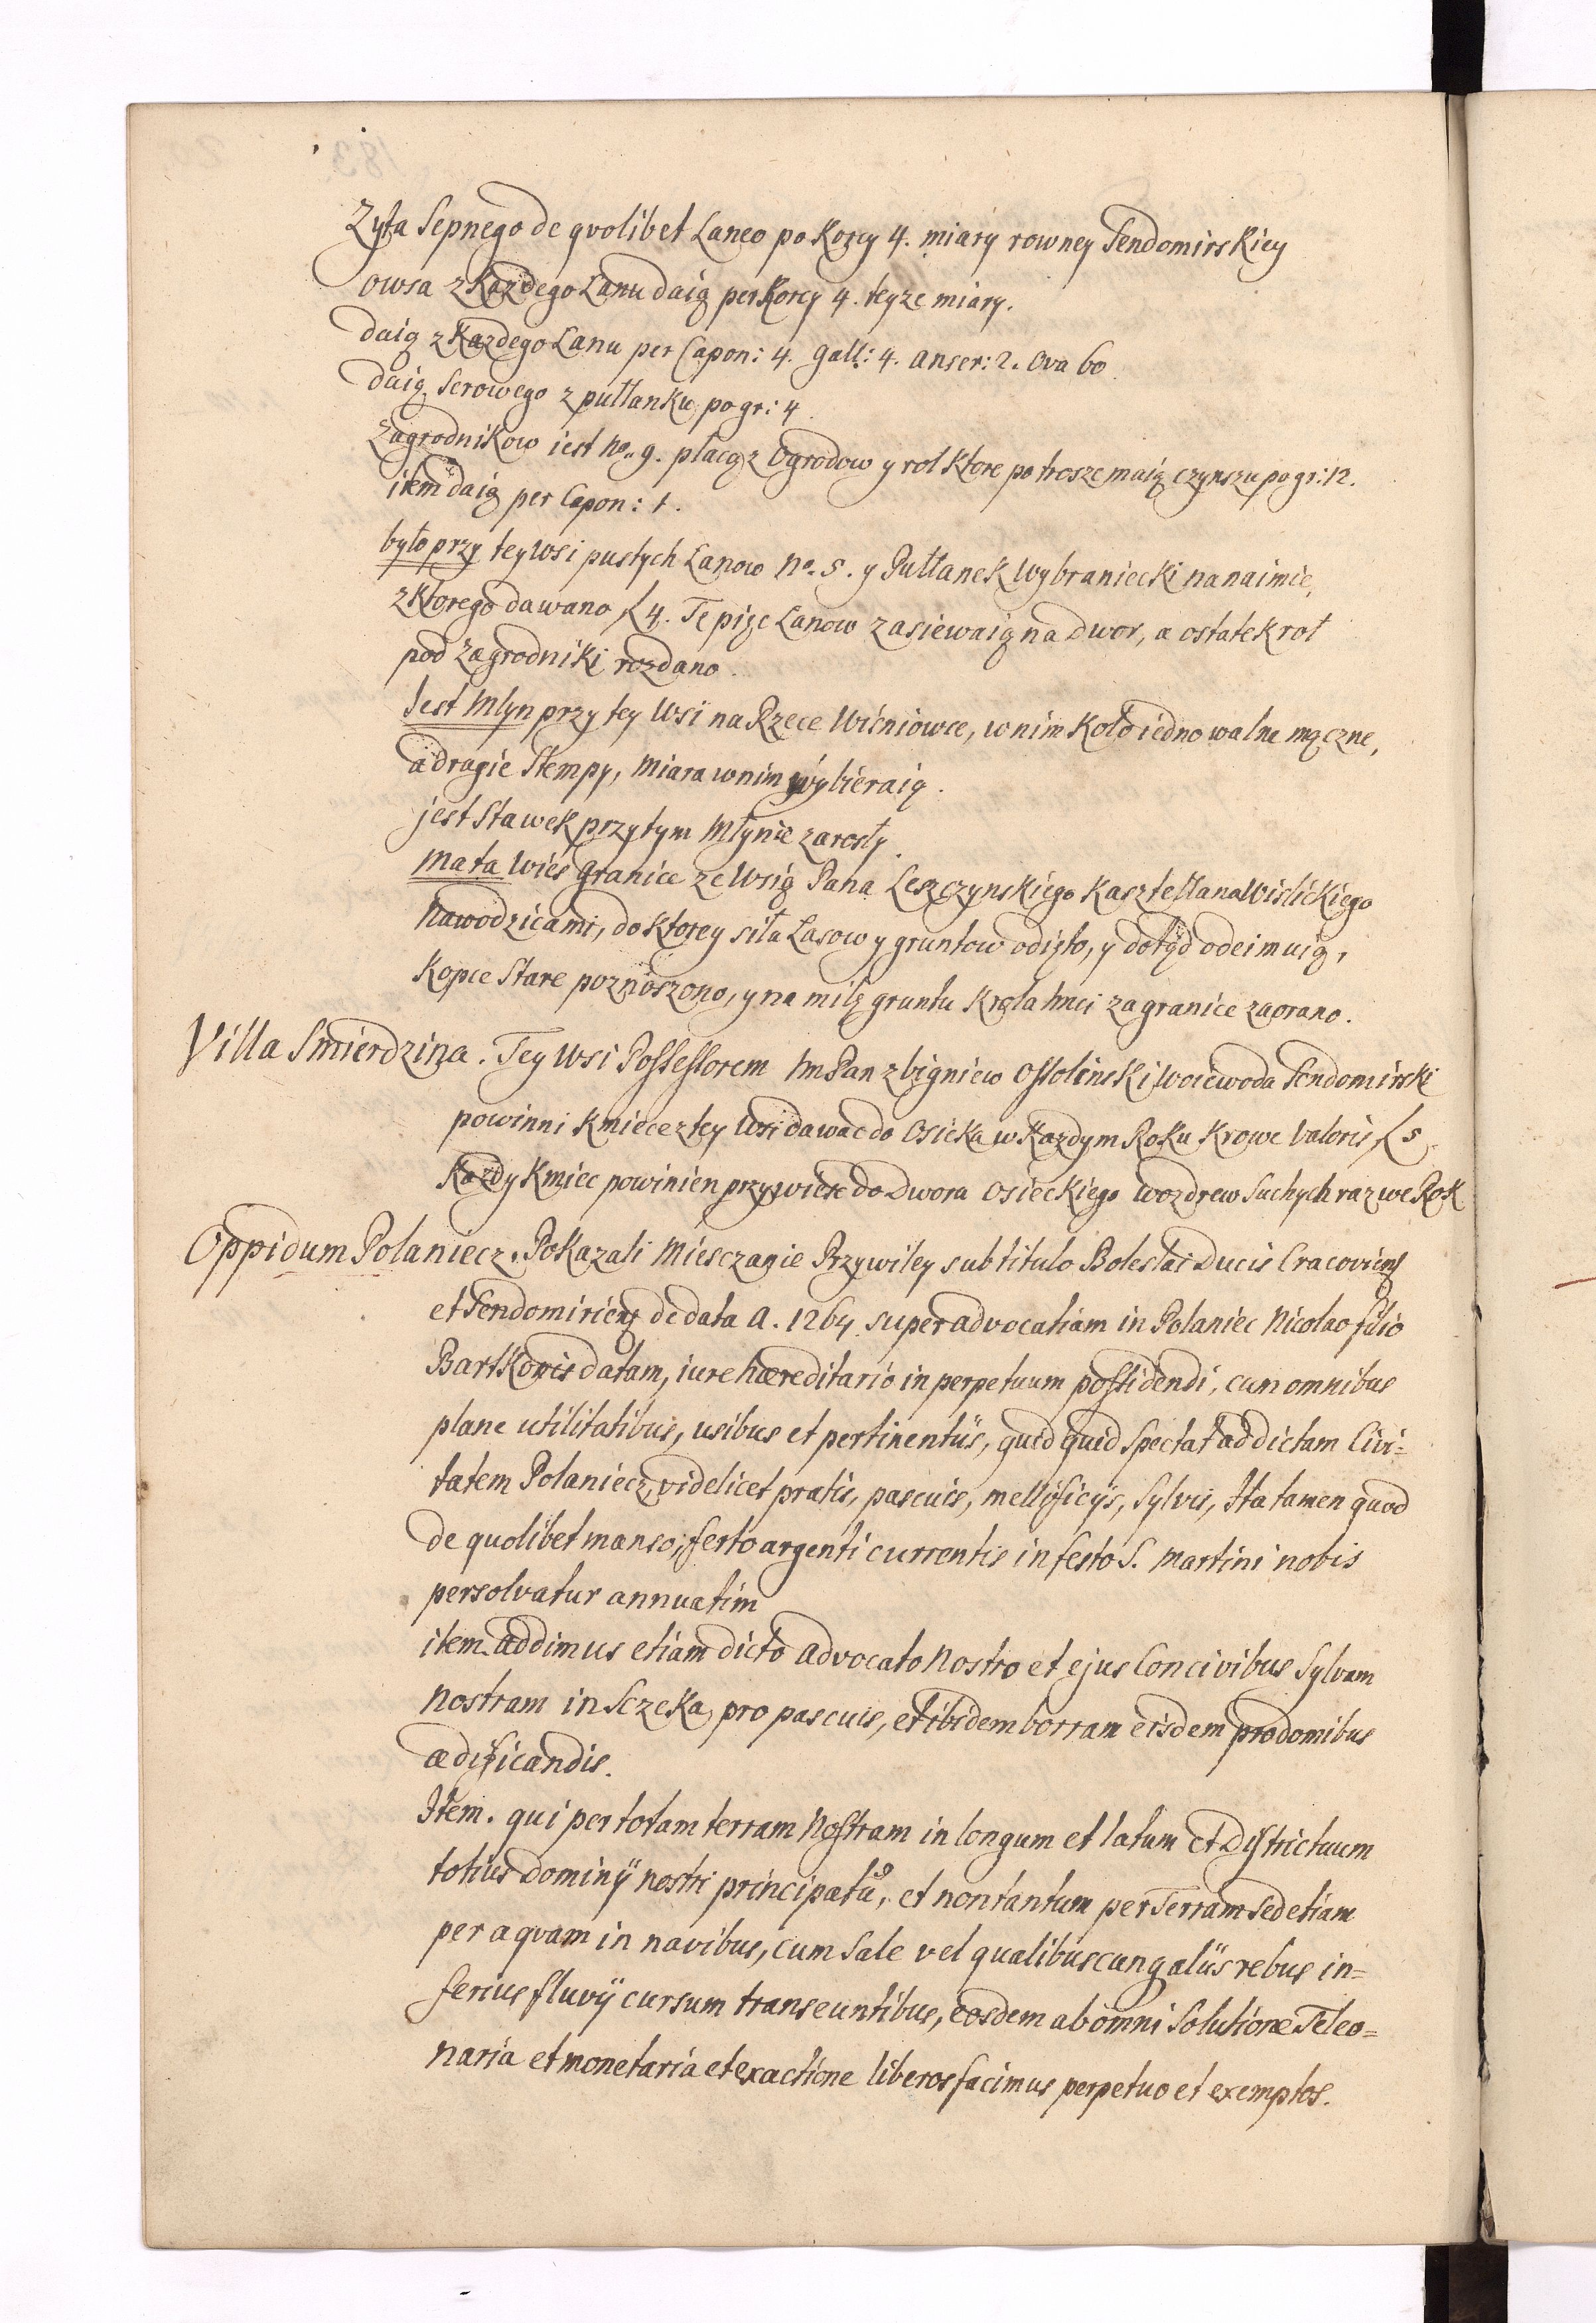 Zyta Sepnego de qvolibet Laneo po Korcy 4. miary rowney Sendomirskiey
owsa z Kazdego Lanu daią per Korcy 4. teyze miary.
daią z Kazdego Lanu per Capon: 4. gall: 4. anser: 2. Ova 60.
daią Serowego z pułłanku po gr: 4.
Zagrodnikow iest No. 9. płacą z Ogrodow y rol Ktore po trosze maią czynszu po gr: 12.
item daią per Capon: 1.
było przy tey Wsi pustych Lanow No. 5. y Pułłanek Wybraniecki na naimie,
z Ktorego dawano f 4. Te pięc Lanow zasiewaią na Dwor, a ostatek rol
pod Zagrodniki rozdano.
Jest Młyn przy tey Wsi na Rzece Wisniowce, w nim Koło iedno walne mączne,
a drugie Stempy, Miara w nim wybieraią.
jest Stawek przy tym Młynie zarosły.
Mała Wies granice ze Wsią Pana Leszczynskiego Kasztellana Wislickiego
Nawodzicami, do Ktorey siła Lasow y gruntow odięto, y dotąd odeimuią,
Kopce Stare poznoszono, y na milę gruntu Krola Jmci za granice zaorano.
Villa Smierdzina. Tey Wsi Possessorem Jm Pan Zbigniew Ossolinski Woiewoda Sendomirski
powinni Kmiece z tey Wsi dawac do Osieka w Kazdym Roku Krowe Valoris f 5.
Kazdy Kmiec powinien przywiesc do Dwora Osieckiego Woz drew Suchych raz w Rok
Oppidum Polaniecz. Pokazali Miesczanie Przywiley sub titulo Boleslai Ducis Cracoviens
et Sendomiriens de data A. 1264. super advocatiam in Polaniec Nicolao filio
Bartkonis datam, iure hæreditario in perpetuum possidendi, cum omnibus
plane utilitatibus, usibus et pertinentiis, quid quid Spectat ad dictam Civi=
tatem Polaniecz, videlicet pratis, pascuis, mellificijs, Sylvis, Ita tamen quod
de quolibet manso, ferto argenti currentis in festo S. Martini nobis
persolvatur annuatim
item addimus etiam dicto advocato Nostro et ejus Concivibus Sylvam
Nostram in Sczeka, pro pascuis, et ibidem borram eisdem pro domibus
ædificandis.
Item. qui per totam terram Nostram in longum et latum et Districtuum
totius Dominij nostri principatus, et non tantum per Terram Sed etiam
per aqvam in navibus, cum Sale vel qualibuscunq aliis rebus in=
ferius fluvij cursum transeuntibus, eosdem ab omni Solutione Teleo=
naria et monetaria et exactione liberos facimus perpetuo et exemptos.